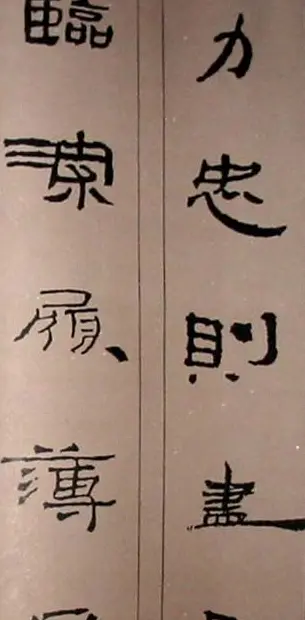 力忠則盡
臨深履薄